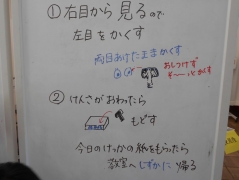 ①右目から見るので
左目をかくす
両目あけたままかくす
おしつけず
そ〜っとかくす
②けんさがおわったら
もどす
今日のけっかの紙をもらったら
教室へしずかに帰る